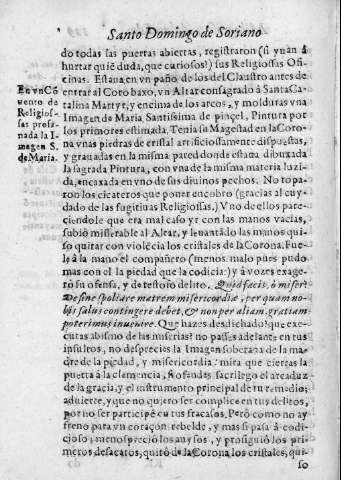 Santo Domingo de Soriano
do todas las puertas abiertas, registraron (si yuan á
hurtar quié duda, que curiosos!) sus Religiossas Ofi-
cinas. Estaua en vn paño de los del Claustro antes de
entrar al Coro baxo, vn Altar consagrado à Santa Ca-
talina Martyr, y encima de los arcos, y molduras vna
Imagen de Maria Santissima de pinçel, Pintura por
los primores estimada. Tenia su Magestad en la Coro-
na vnas piedras de cristal artificiossamente dispuestas,
y grauadas en la misma pared donde estaua dibuxada
la sagrada Pintura, con vna de la misma materia luzi-
da, encaxada en vno de sus diuinos pechos. No topa-
ron los cicateros que poner en cobro (gracias al cuy-
dado de las fugitiuas Religiossas.) Vno de ellos pare-
ciendole que era mal caso yr con las manos vacias,
subió miserable al Altar, y leuantádo las manos qui-
so quitar con violécia los cristales de la Corona. Fue-
le à la mano el compañero (menos malo pues pudo
mas con el la piedad que la codicia:) y á vozes exage-
ró su ofensa, y detestó el delito. Quid facis, ò miser?
Desine spoliare matrem misericordiæ, per quam no-
bis salus contingere debet, & non per aliam gratiam
poterimus inuenire. Que hazes desdichado? que exe-
cutas abismo de las miserias? no passes adelante en tus
insultos, no desprecies la Imagen Soberana de la ma-
dre de la piedad, y misericordia: mira que cierras la
puerta à la clemencia, si ofendes sacrilego el arcaduz
de la gracia, y el instrumento principal de tu remedio;
aduierte, y que no quiero ser complice en tus delitos,
por no ser participé en tus fracasos. Peró como no ay
freno para vn coraçon rebelde, y mas si passa à codi-
cioso; menospreció los auysos, y prosiguió los pri-
meros desacatos, quitò de la Corona los cristales, qui-
so
En vn Có
uento de
Religios-
sas profa-
nada la I-
magen S.
de Maria.